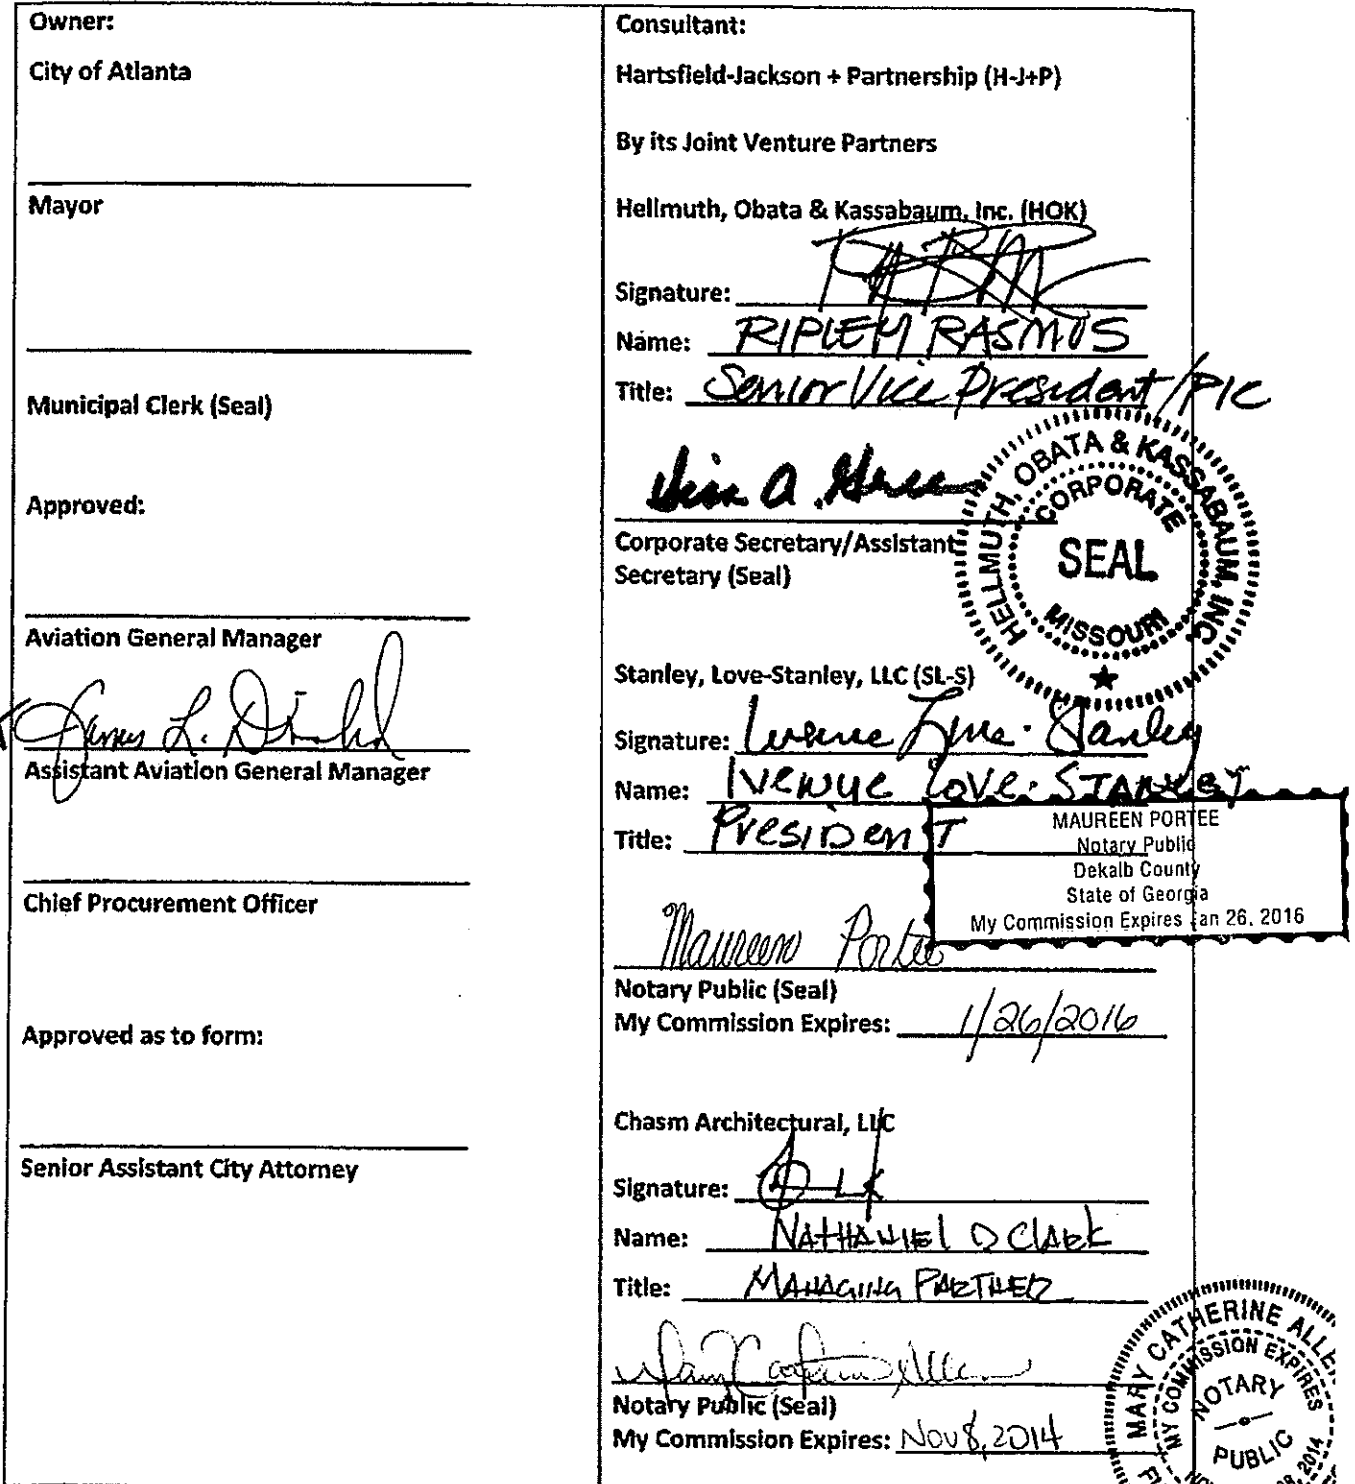 Owner:
City of Atlanta
Mayor
Municipal Clerk (Seal)
Approved:
Aviation General Manager
James L.
Assistant Aviation General Manager
Chief Procurement Officer
Approved as to form:
Senior Assistant City Attorney
Consultant:
Hartsfield-Jackson + Partnership (H-J+P)
By its Joint Venture Partners
Hellmuth, Obata & Kassabaum, Inc. (HOK)
Signature:
Name: RIPLEY RASMUS
Title: Senior Vice President/PIC
HELLMUTH, OBATA & KASSABAUM, INC.
CORPORATE
SEAL
MISSOURI
Corporate Secretary/Assistant
Secretary (Seal)
Stanley, Love-Stanley, LLC (SL-S)
Signature: Ivenue Love-Stanley
Name: IVENUE LOVE-STANLEY
Title: PRESIDENT
MAUREEN PORTEE
Notary Public
Dekalb County
State of Georgia
My Commission Expires Jan 26, 2016
Maureen Portee
Notary Public (Seal)
My Commission Expires: 1/26/2016
Chasm Architectural, LLC
Signature:
Name: NATHANIEL D CLARK
Title: MANAGING PARTNER
Mary Catherine Allen
Notary Public (Seal)
My Commission Expires: Nov 8, 2014
MARY CATHERINE ALLE
MY COMMISSION EXPIRES
NOTARY
PUBLIC
08, 2014